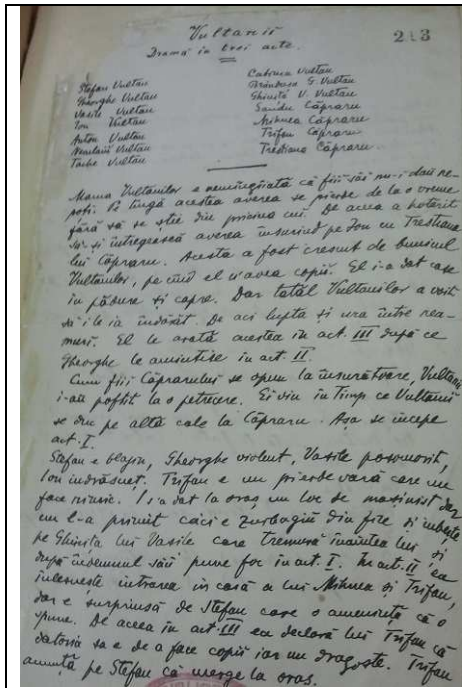 Vultanii
213
Dramă în trei acte.
Ștefan Vultan
Gheorghe Vultan
Vasile Vultan
Ion Vultan
Anton Vultan
Neculaiu Vultan
Tache Vultan
Catrina Vultan
G. Vultan
Ghiniță V. Vultan
Sandu Căpraru
Mihnea Căpraru
Trifan Căpraru
Trestiana Căpraru.
Mama Vultanilor e nemîngâiată că fiii săi nu-i dau ne-
poți. Pe lîngă acestea averea se pierde de la o vreme
fără să se știe din pricina cui. De aceea a hotărît
să-și întregească averea însurînd pe Ion cu Trestiana
lui Căpraru. Acesta a fost crescut de bunicul
Vultanilor, pe cînd el n'avea copii. El i-a dat case
în pădure și capre. Dar tatăl Vultanilor a voit
să i le ia îndărăt. De aci lupta și ura între nea-
muri. El le arată acestea în act. III după ce
Gheorghe le amintise în act. II.
Cum fiii Căprarului se opun la însurătoare, Vultanii
i-au poftit la o petrecere. Ei vin în timp ce Vultanii
se duc pe altă cale la Căpraru. Așa se începe
act. I.
Ștefan e blajin, Gheorghe violent, Vasile posomorît,
Ion îndrăsneț. Trifan e un pierde vară care nu
face nimic. I s'a dat la oraș un loc de mașinist dar
nu l-a primit căci e zurbagiu din fire și iubește
pe Ghinița lui Vasile care tremură înaintea lui și
după îndemnul său pune foc în act. I. In act. II ea
înlesnește intrarea în casă a lui Mihnea și Trifan,
dar e surprinsă de Ștefan care o amenință că o
spune. De aceea în act. III ea declară lui Trifan că
datoria sa e de a face copii iar nu dragoste. Trifan
anunță pe Ștefan că merge la oraș.